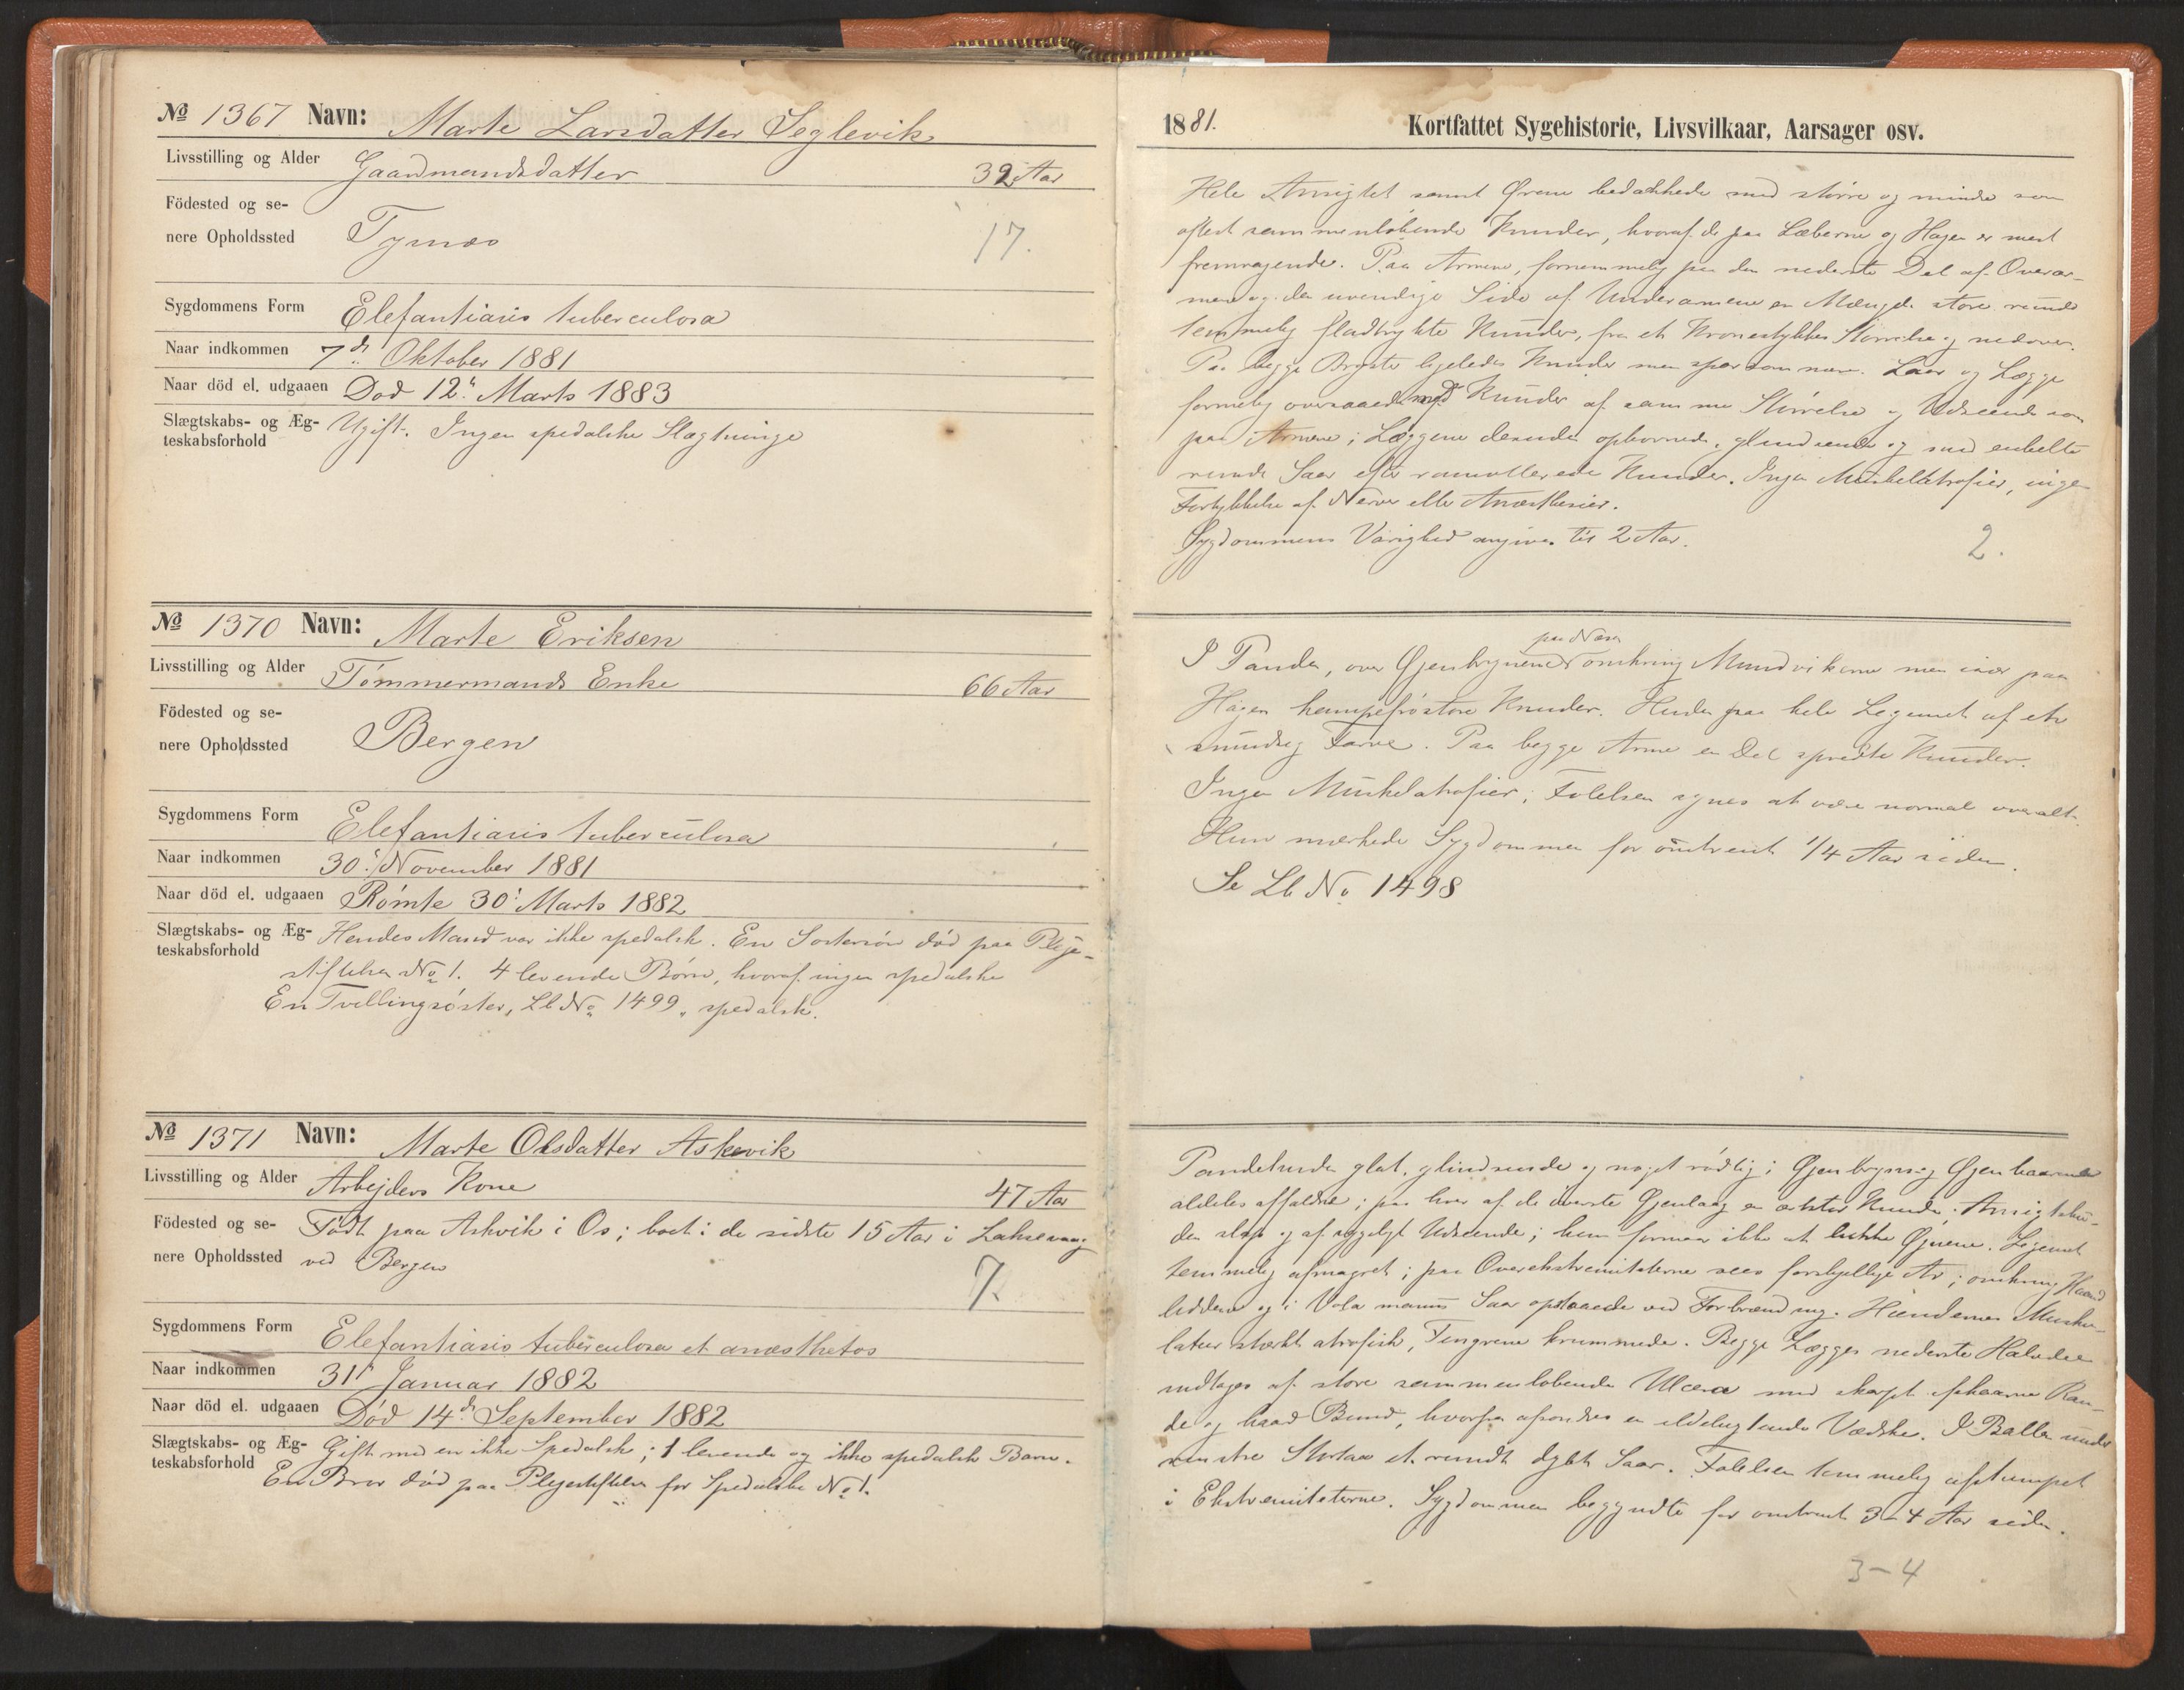 № 1367 Navn: Marte Larsdatter Seglevik
Livsstilling og Alder Gaardmandsdatter 32 Aar
Födested og se-
nere Opholdssted Tysnæs
17.
Sygdommens Form Elefantiasis tuberculosa
Naar indkommen 7de Oktober 1881
Naar död el. udgaaen Død 12' Marts 1883
Slægtskabs- og Æg-
teskabsforhold Ugift. Ingen spedalske Slægtninge
№ 1370 Navn: Marte Eriksen
Livsstilling og Alder Tømmermands Enke 66 Aar
Födested og se-
nere Opholdssted Bergen
Sygdommens Form Elefantiasis tuberculosa
Naar indkommen 30' November 1881
Naar död el. udgaaen Rømte 30' Marts 1882
Slægtskabs- og Æg-
teskabsforhold Hendes Mand var ikke spedalsk. En Søstersøn død paa Pleje-
stiftelsen No 1. 4 levende Børn, hvoraf ingen spedalske
En Tvillingsøster, Lb No 1499, spedalsk.
№ 1371 Navn: Marte Olsdatter Askevik
Livsstilling og Alder Arbejders Kone 47 Aar
Födested og se- Født paa Askvik i Os; boet i de sidste 15 Aar i Laksevaag
nere Opholdssted ved Bergen
7.
Sygdommens Form Elefantiasis tuberculosa et anæsthetos
Naar indkommen 31' Januar 1882
Naar död el. udgaaen Død 14de September 1882
Slægtskabs- og Æg-
teskabsforhold Gift med en ikke Spedalsk; 1 levende og ikke spedalsk Barn.
En Bror død paa Plejestiftelsen for Spedalske No 1.
1881. Kortfattet Sygehistorie, Livsvilkaar, Aarsager osv.
Hele Ansigtet samt Ørene bedækkede med større og mindre som
oftest sammenløbende Knuder, hvoraf de paa Læberne og Hagen er mest
fremragende. Paa Armene, fornemmelig paa den nederste Del af Overar-
mene og den udvendige Side af Underarmene en Mængde store runde
temmelig fladtrykte Knuder, fra et Kronestykkes Størrelse og nedover.
Paa begge Bryster ligeledes Knuder men sparsommere. Laar og Lægge
formelig oversaaede med Knuder af samme Størrelse og Udseende som
paa Armene; Læggene desuden ophovnede, glindsende og med enkelte
runde Saar efter ramollerede Knuder. Ingen Muskelatrofier, ingen
Fortykkelse af Nerver eller Anæsthesier.
Sygdommens Varighed angives til 2 Aar.
2.
paa Næsen
I Panden, over Øjenbrynene omkring Mundvikene men især paa
Hagen hampefrøstore Knuder. Huden paa hele Legemet af en
smudsig Farve. Paa begge Arme en Del spredte Knuder.
Ingen Muskelatrofier; Følelsen synes at være normal overalt.
Hun mærkede Sygdommen for omtrent 1/4 Aar siden.
Se Lb No 1498
Pandehuden glat, glindsende og noget rødlig; Øjenbryn og Øjenhaarene
aldeles affaldne; paa hver af de øverste Øjenlaag en ertestor Knude. Ansigtshu-
den slap og af sygeligt Udseende; hun formaar ikke at lukke Øjnene. Legemet
temmelig afmagret; paa Overekstremiteterne sees forskjellige Ar; omkring Haand-
leddene og i Vola manus Saar opstaaede ved Forbrænding. Hændernes Musku-
latur stærkt atrofisk, Fingrene krummede. Begge Lægges nederste Halvdel
indtages af store sammenløbende Ulcera med skarpt afskaarne Ran-
de og haard Bund, hvorfra afsondres en ildelugtende Vædske. I Ballen under
venstre Stortaa et rundt dybt Saar. Følelsen temmelig afstumpet
i Ekstremiteterne. Sygdommen begyndte for omtrent 3-4 Aar siden.
3-4